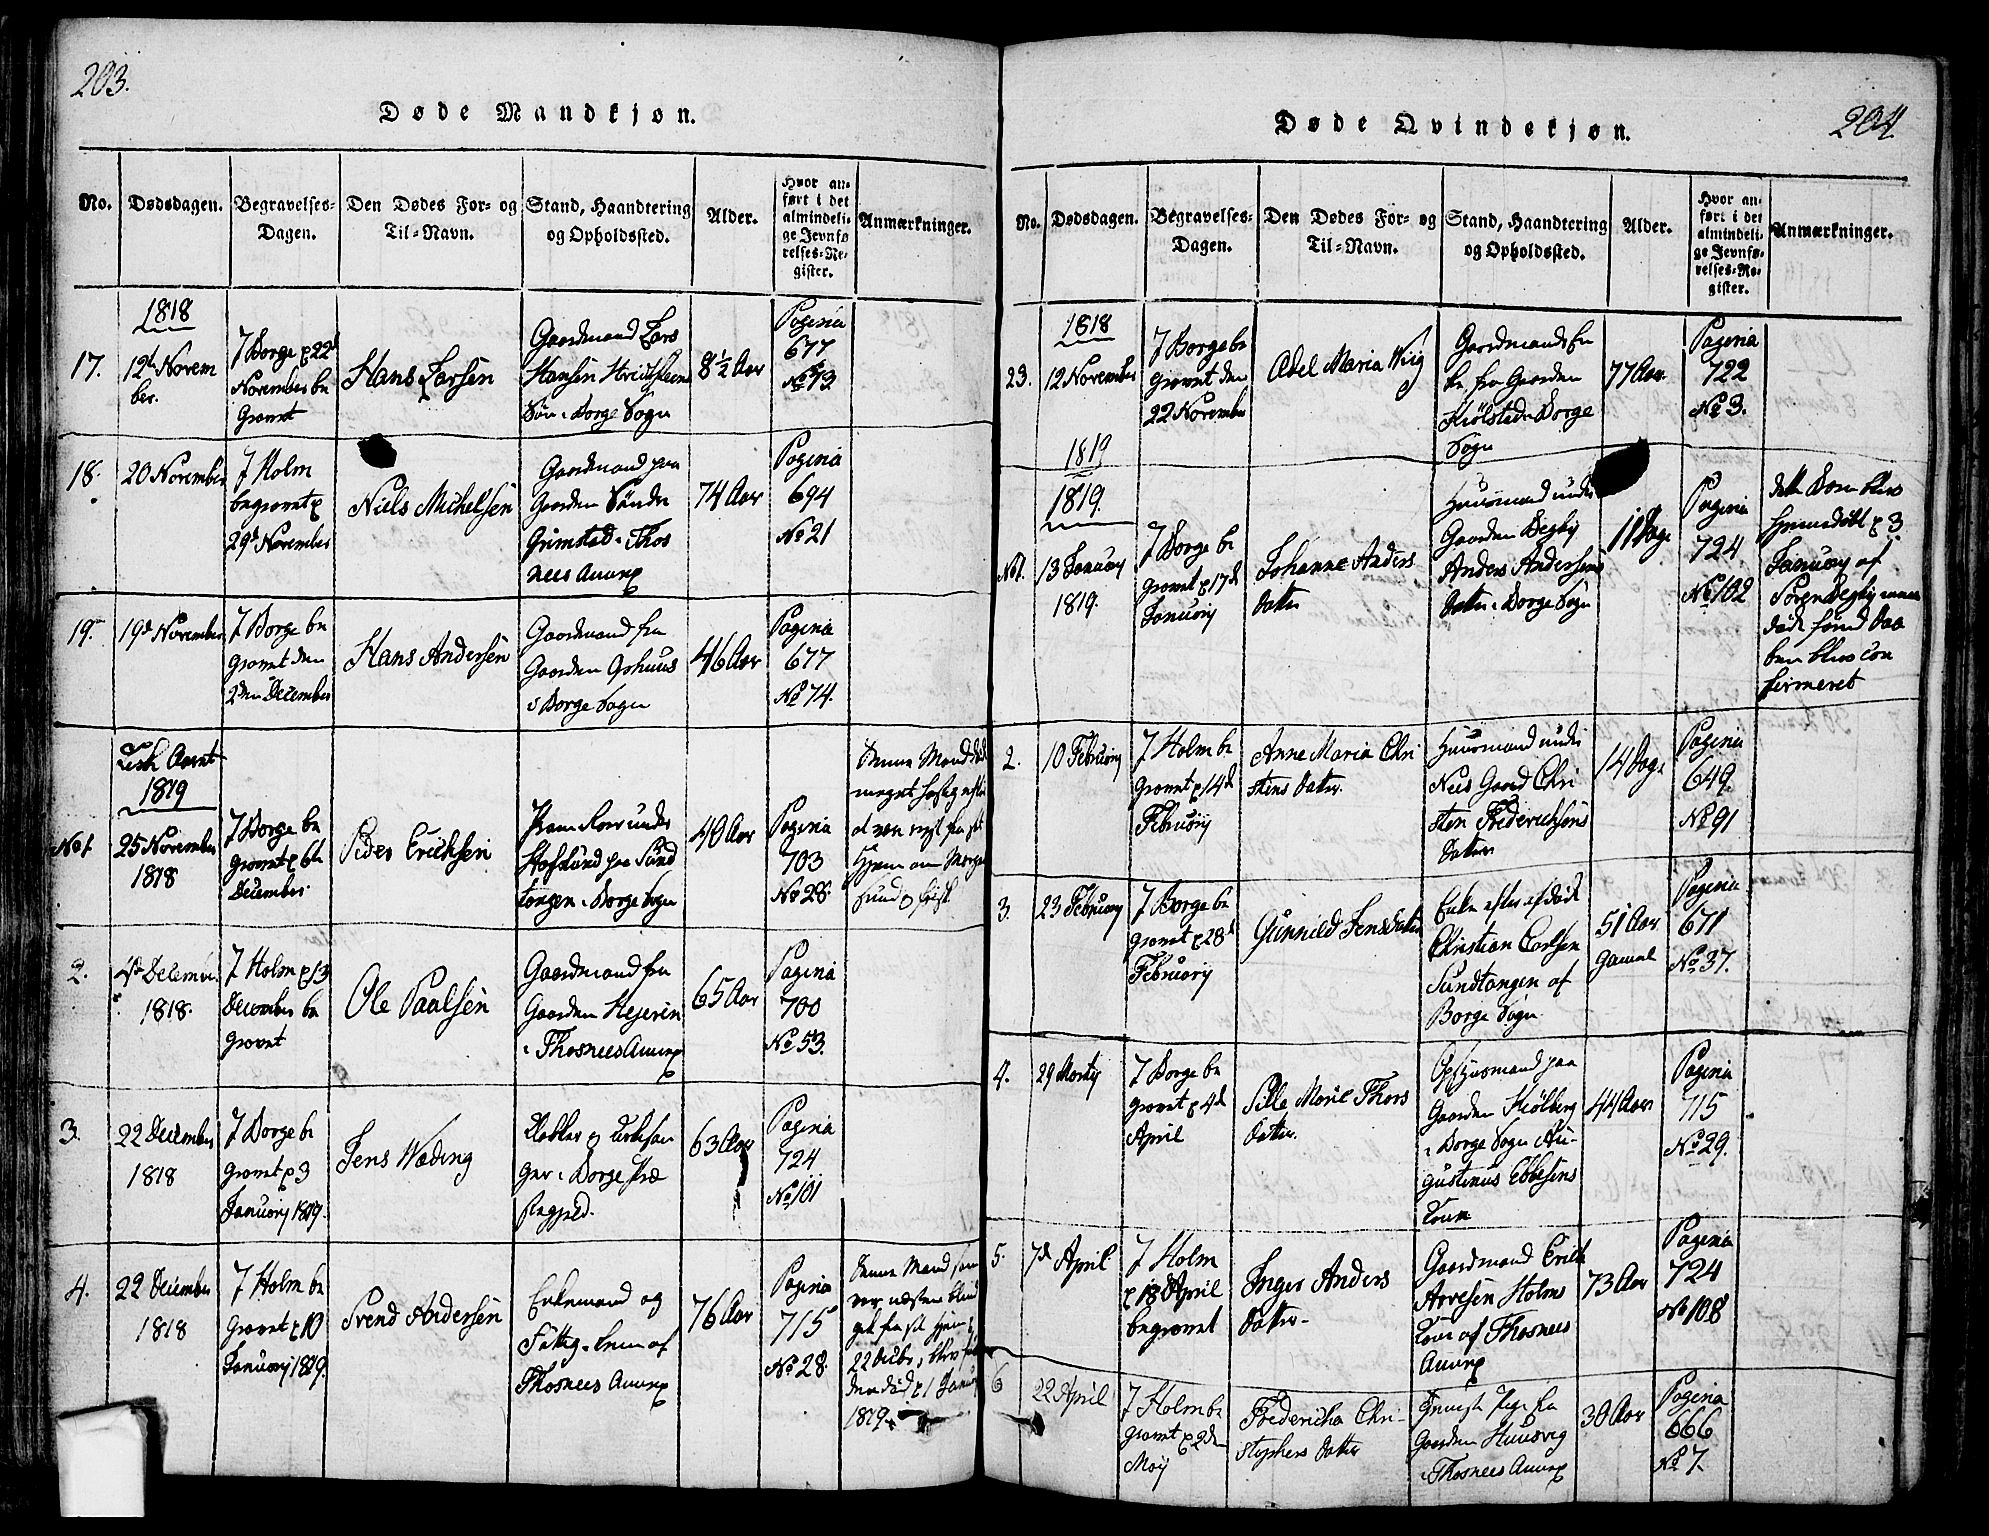 203.
Døde Mandkjøn.
No.
Dødsdagen.
Begravelses-
Dagen.
Den Dødes For- og
Til-Navn.
Stand, Haandtering
og Opholdssted.
Alder.
Hvor an-
ført i det
almindeli-
ge Jevnfø-
relses-Re-
gister.
Anmærkninger.
1818
17.
12te Novem
ber.
7 Borge d 22d
November be
gravet
Hans Larsen
Gaardmand Lars
Hansen
Søn i Borge Sogn
8½ Aar
Pagina
677
No 73.
18.
20 November
7 Holm
begravet d
29d November
Niels Michelsen
Gaardmand paa
Gaarden Søndre
Grimstad i Thos
nees Annex
74 Aar
Pagina
694
No 21
19.
19d November
7 Borge be
gravet den
2den December
Hans Andersen
Gaardmand fra
Gaarden Ophuus
i Borge Sogn
46 Aar
Pagina
677
No 74.
Aaret
1819
No 1.
25 November
1818
7 Borge be
gravet d 6te
December
Peder Erichsen
under
paa Sund
tangen i Borge Sogn
40 Aar
Pagina
703
No 28
Denne Mand døde
meget hastig efter
Hjem om Morgen
sund og frisk
2.
4de December
1818.
7 Holm d 13
December be
gravet
Ole Paalsen
Gaardmand fra
Gaarden Hejerin
i Thosnees Annex
65 Aar
Pagina
700
No 53.
3.
22 December
1818
7 Borge be
gravet d 3
Januarij 1819.
Jens Wæding
Klokker og Kirkesan
ger i Borge Præ
stegjeld.
63 Aar
Pagina
724
No 101
4.
22 December
1818
7 Holm be
gravet d 10
Januarij 1819.
Svend Andersen
Enkemand og
Fattig Lem af
Thosnees Annex
76 Aar
Pagina
715
No 28.
Denne Mand som
var næsten blind
gik fra sit Hjem d
22 Decbr, blev fun
den død d 1 Januar
1819.
204.
Døde Qvindekjøn.
No.
Dødsdagen.
Begravelses-
Dagen.
Den Dødes For- og
Til-Navn.
Stand, Haandtering
og Opholdssted.
Alder.
Hvor an-
ført i det
almindeli-
ge Jevnfø-
relses-Re-
gister.
Anmærkninger.
1818
23.
12 November
7 Borge be
gravet den
22 November
Abel Maria Wiig
Gaardmands En
ke fra Gaarden
Kiølstad i Borge
Sogn
77 Aar
Pagina
722
No 3.
1819
1819.
No 1.
13 Januarij
1819.
7 Borge be
gravet d 17de
Januarij
Johanne Anders
datter
Huusmand under
Gaarden Begby
Anders Andersens
datter i Borge Sogn
11 Dage
Pagina
724
No 102
dette Barn blev
hjemmedøbt d 3
Januarij af
Søren Begby men
døde førend Daa
ben blev con
firmeret
2.
10 Februarij
7 Holm be
gravet d 14de
Februarij
Anne Maria Chri
stens datter
Huusmand under
Nees Gaard Chri
sten Friderichsens
datter
14 Dage
Pagina
649.
No 91
3.
23 Februarij
7 Borge be
gravet d 28d
Februarij
Gunnild Jensdatter
Enke efter afdøde
Christian Carlsen
Sundtangen af
Borge Sogn
51 Aar
gammel
Pagina
671
No 37.
4.
29 Martij
7 Borge be
gravet d 4de
April
Sille Marie Thors
datter.
Opsidermand paa
Gaarden Kiølberg
i Borge Sogn Au-
gustinus Ebbesens
Kone
44 Aar
Pagina
715
No 29.
5.
7de April
7 Holm
d 18d April
begravet
Inger Anders
datter
Gaardmand Erich
Arvesen Holms
Kone af Thosnees
Annex
73 Aar
Pagina
724
No 108
6
22 April
7 Holm be
gravet d 2den
Maij
Fredericha Chri-
stophers datter
Pige fra
Gaarden Huusvig
i Thosnees Annex
30 Aar
Pagina
666
No 7.